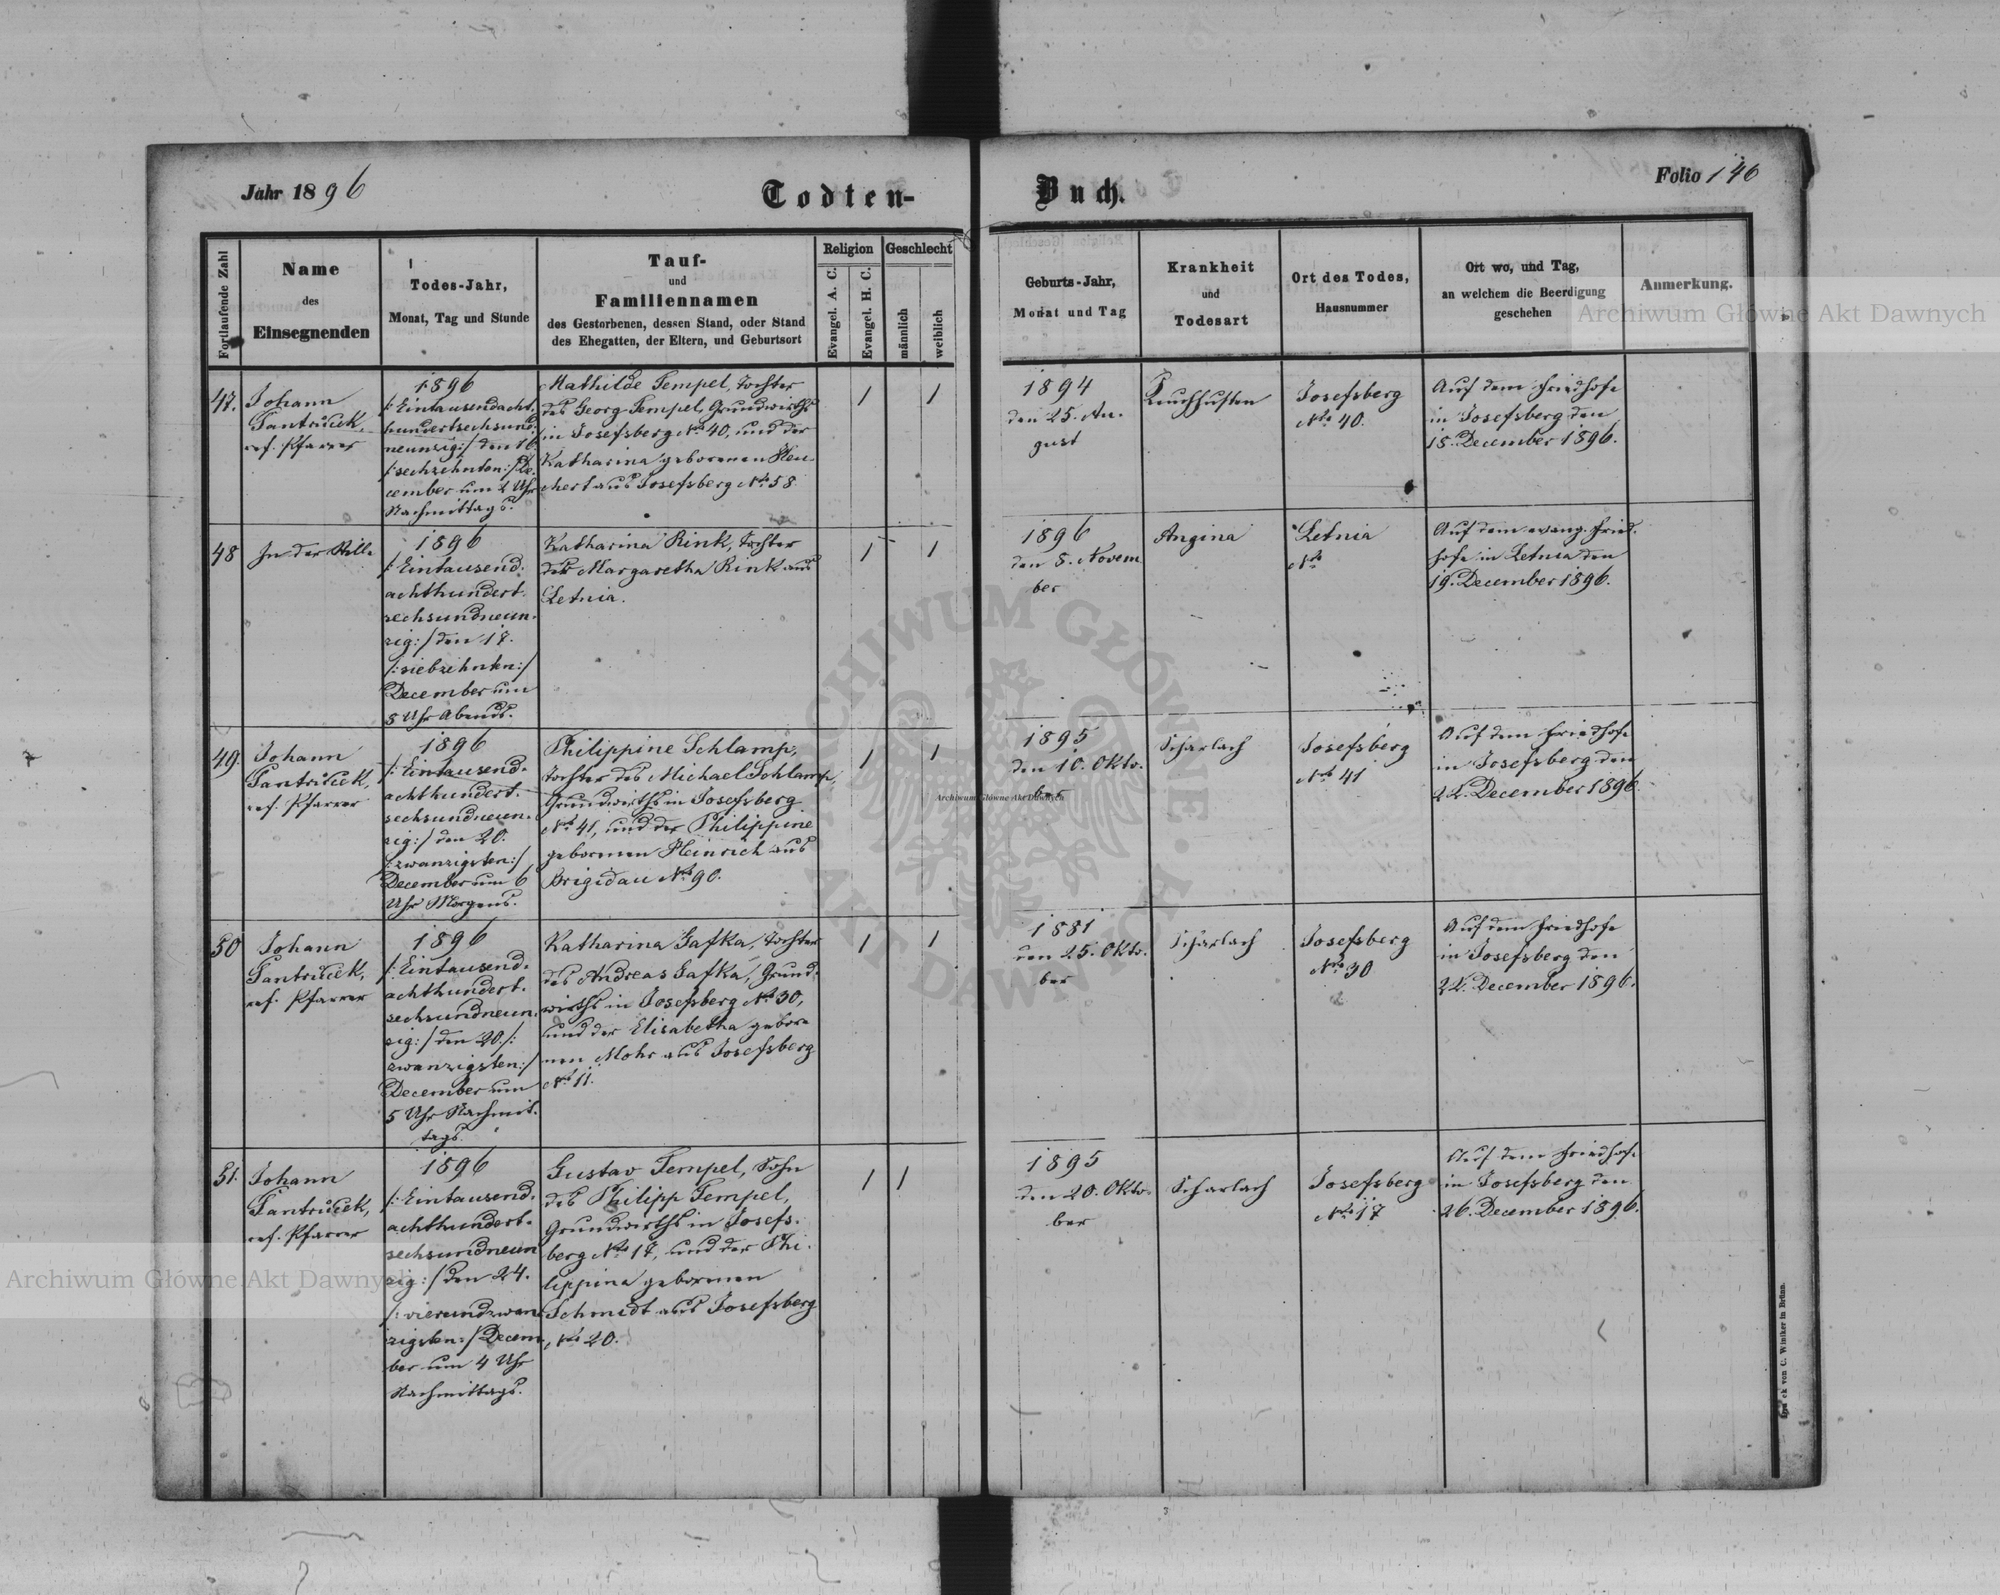 Jahr 1896
Todten-
Buch.
Folio 146
Fortlaufende Zahl
Name
des
Einsegnenden
Todes-Jahr,
Monat, Tag und Stunde
Tauf-
und
Familiennamen
des Gestorbenen, dessen Stand, oder Stand
des Ehegatten, der Eltern, und Geburtsort
Religion
Evangel. A. C.
Evangel. H. C.
Geschlecht
männlich
weiblich
Geburts-Jahr,
Monat und Tag
Krankheit
und
Todesart
Ort des Todes,
Hausnummer
Ort wo, und Tag,
an welchem die Beerdigung
geschehen
Anmerkung.
47.
Johann
Jantrůček,
ref. Pfarrer
1896
/:Eintausendacht-
hundertsechsund-
neunzig:/ den 16.
/:sechzehnten:/ De-
cember um 2 Uhr
Nachmittags.
Mathilde Tempel, Tochter
des Georg Tempel, Grundwirths
in Josefsberg Nro 40, und der
Katharina geborenen Heu-
chert aus Josefsberg Nro 58.
1
1
1894
den 25. Au-
gust
Keuchhusten
Josefsberg
Nro 40.
Auf dem Friedhofe
in Josefsberg den
18. December 1896.
48
In der Stille
1896
/:Eintausend-
achthundert-
sechsundneun-
zig:/ den 17.
/:siebzehnten:/
December um
8 Uhr Abends.
Katharina Rink, Tochter
der Margaretha Rink aus
Letnia.
1
1
1896
den 8. Novem
ber
Angina
Letnia
Nro
Auf dem evang. Fried-
hofe in Letnia den
19. December 1896.
49.
Johann
Jantrůček,
ref. Pfarrer
1896
/:Eintausend-
achthundert-
sechsundneun-
zig:/ den 20.
/:zwanzigsten:/
December um 6
Uhr Morgens.
Philippine Schlamp,
Tochter des Michael Schlamp,
Grundwirths in Josefsberg
Nro 41, und der Philippine
geborenen Heinrich aus
Brigidau Nro 90.
1
1
1895
den 10. Okto-
ber
Scharlach
Josefsberg
Nro 41
Auf dem Friedhofe
in Josefsberg den
22. December 1896.
50
Johann
Jantrůček,
ref. Pfarrer
1896
/:Eintausend-
achthundert-
sechsundneun-
zig:/ den 20./:
zwanzigsten:/
December um
5 Uhr Nachmit-
tags.
Katharina Gafka, Tochter
des Andreas Gafka, Grund-
wirths in Josefsberg Nro 30,
und der Elisabetha gebore-
nen Mohr aus Josefsberg
Nro 11.
1
1
1881
den 25. Okto-
ber
Scharlach
Josefsberg
Nro 30
Auf dem Friedhofe
in Josefsberg den
22. December 1896.
51.
Johann
Jantrůček,
ref. Pfarrer
1896
/:Eintausend-
achthundert-
sechsundneun
zig:/ den 24.
/:vierundzwan-
zigsten:/ Decem-
ber um 4 Uhr
Nachmittags.
Gustav Tempel, Sohn
des Philipp Tempel,
Grundwirths in Josefs-
berg Nro 17, und der Phi-
lippina geborenen
Schmidt aus Josefsberg
Nro 20.
1
1
1895
den 20. Okto-
ber
Scharlach
Josefsberg
Nro 17
Auf dem Friedhofe
in Josefsberg den
26. December 1896.
Druck von C. Winiker in Brünn.
Archiwum Główne Akt Dawnych
Archiwum Główne Akt Dawnych
Archiwum Główne Akt Dawnych
ARCHIWUM GŁÓWNE AKT DAWNYCH